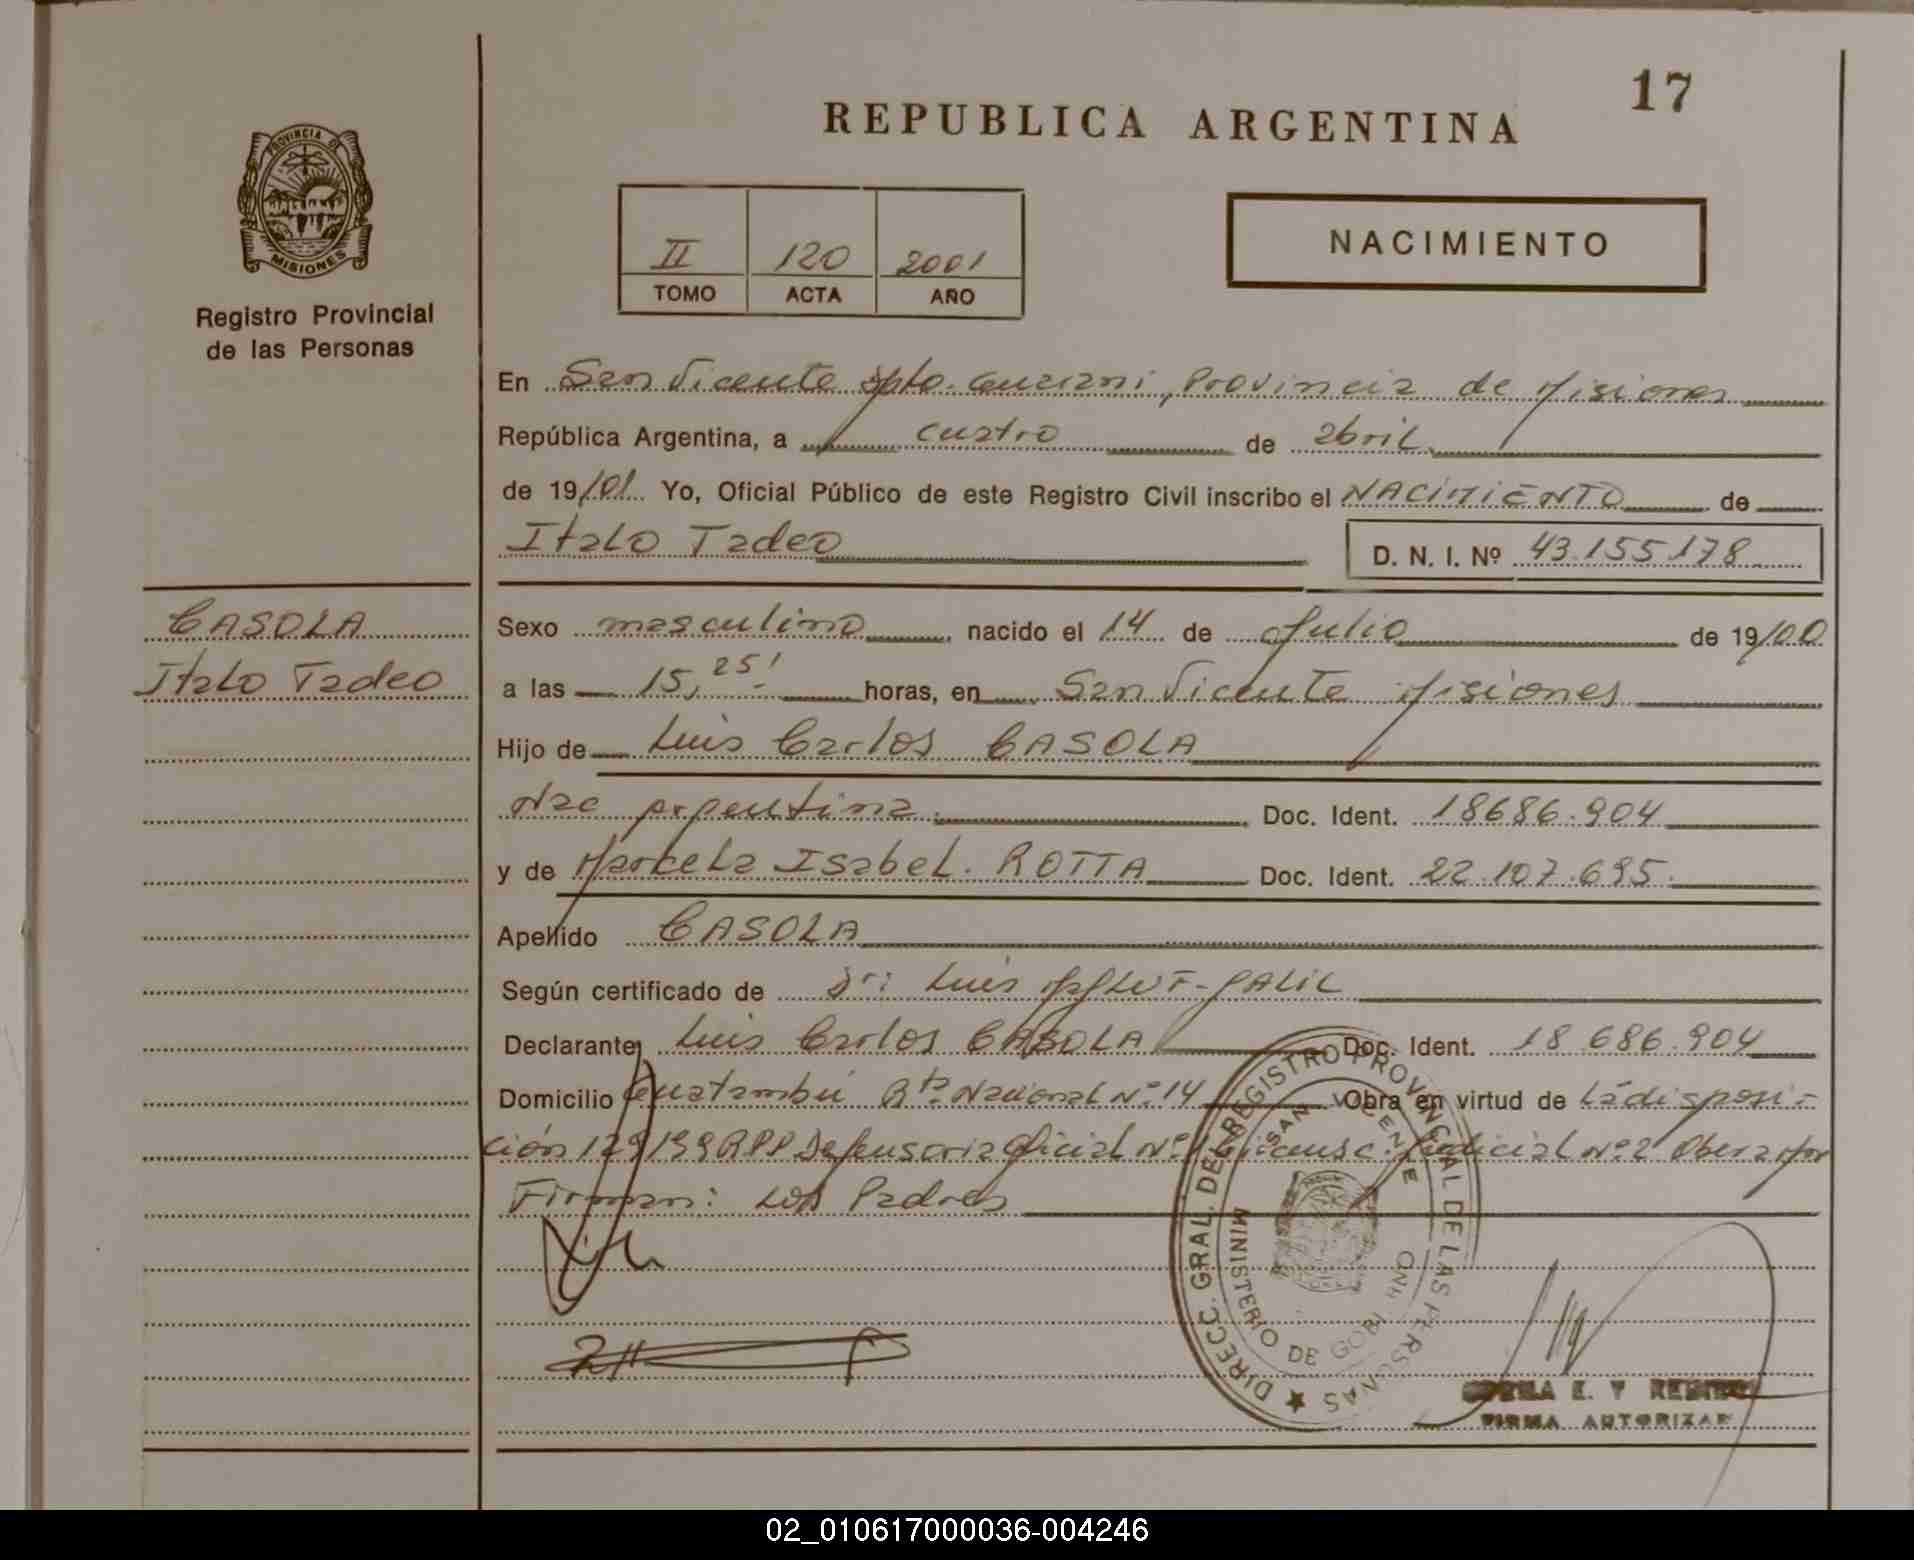 17
REPUBLICA ARGENTINA
PROVINCIA DE
MISIONES
Registro Provincial
de las Personas
II 120 2001
TOMO ACTA AÑO
NACIMIENTO
En San Vicente Dpto. Guarani, Provincia de Misiones
República Argentina, a cuatro de abril
de 19/01 Yo, Oficial Público de este Registro Civil inscribo el NACIMIENTO de
Italo Tadeo
D. N. I. Nº 43.155.178
CASOLA
Italo Tadeo
Sexo masculino nacido el 14 de Julio de 19/00
a las 15,25' horas, en San Vicente Misiones
Hijo de Luis Carlos CASOLA
Nac Argentina. Doc. Ident. 18686.904
y de Marcela Isabel. ROTTA Doc. Ident. 22.107.695.
Apellido CASOLA
Según certificado de Dr: Luis
Declarante Luis Carlos CASOLA Doc. Ident. 18 686.904
Domicilio Guatambú Rta. Nacional Nº 14 Obra en virtud de la disposi-
ción 129/99 RPP Defensoria Oficial Nº Judicial Nº 2 Obera
Firman: Los Padres
DIRECC. GRAL. DEL REGISTRO PROVINCIAL DE LAS PERSONAS
SAN VICENTE
MINISTERIO DE GOBIERNO
E. Y
FIRMA AUTORIZAD
02_010617000036-004246